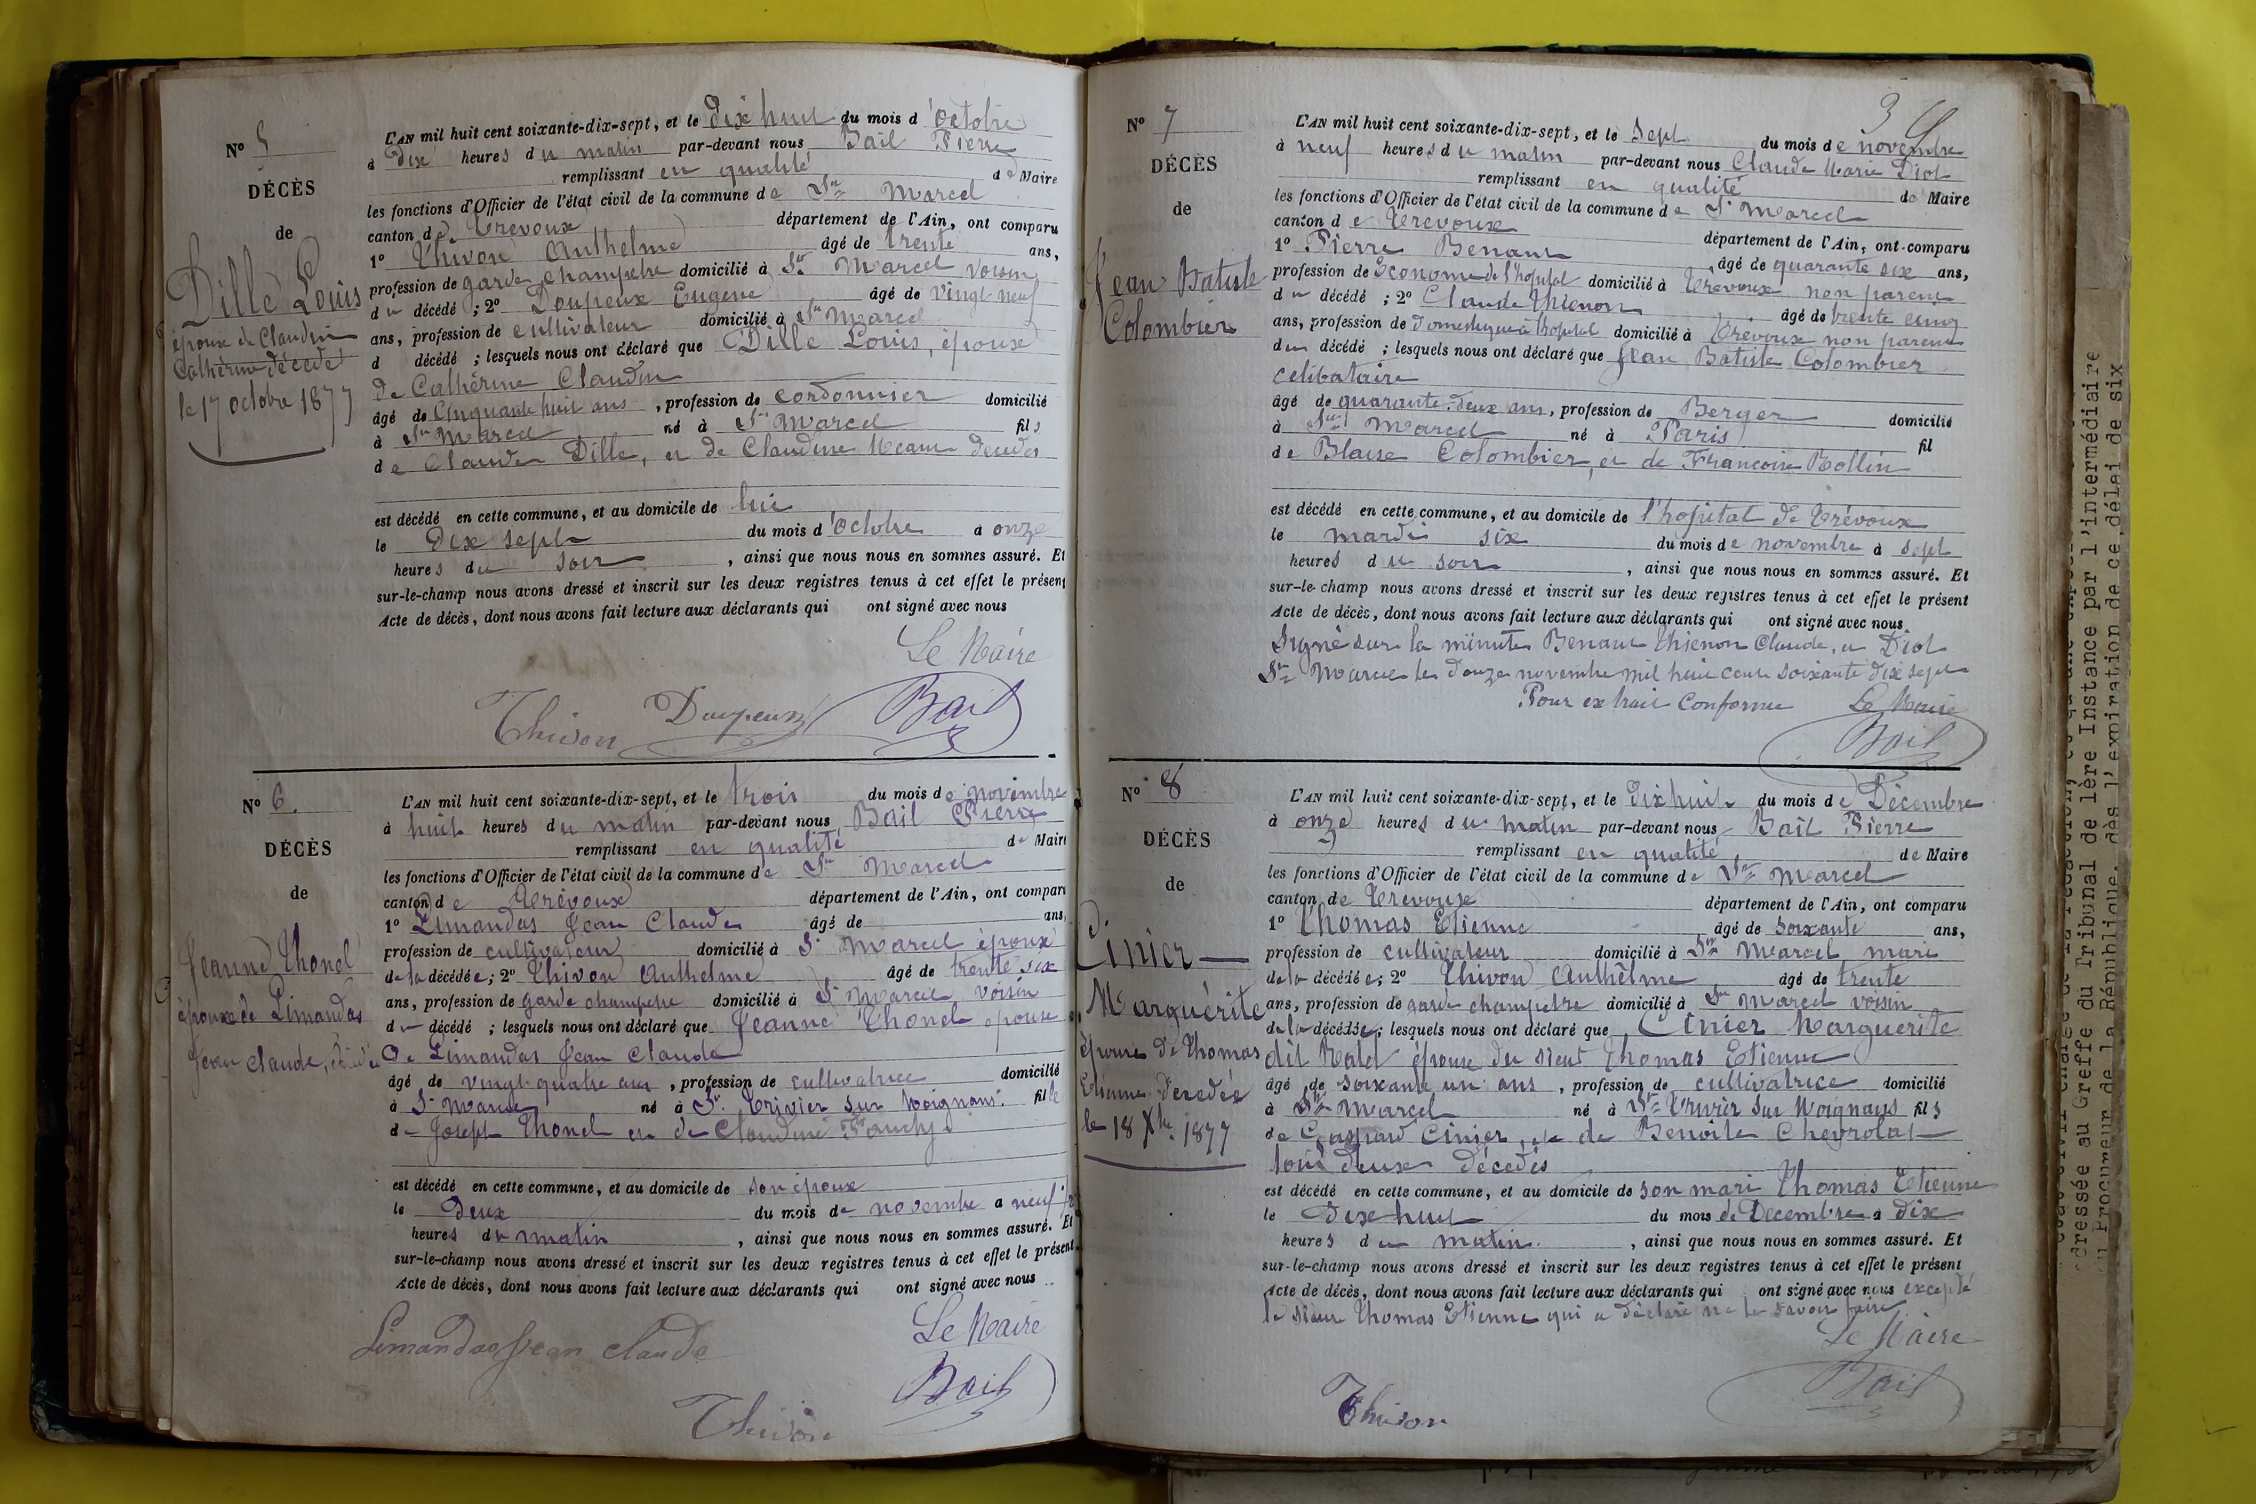 N° 5
DÉCÈS
de
Dille Louis
époux de Claudin
Catherine décédé
le 17 octobre 1877
L'AN mil huit cent soixante-dix-sept, et le dix huit du mois d'octobre
à Dix heures du matin par-devant nous Bail Pierre
remplissant en qualité de Maire
les fonctions d'Officier de l'état civil de la commune de St Marcel
canton de Trevoux département de l'Ain, ont comparu
1° Thivon Anthelme âgé de trente ans,
profession de garde champetre domicilié à St Marcel voisin
du décédé ; 2° Doupeux Eugene âgé de vingt neuf
ans, profession de cultivateur domicilié à St Marcel
d décédé ; lesquels nous ont déclaré que Dille Louis, époux
de Cathérine Claudin
âgé de Cinquante huit ans, profession de cordonnier domicilié
à St Marcel né à St Marcel fils
de Claude Dille, et de Claudine decedés
est décédé en cette commune, et au domicile de lui
le Dix sept du mois d'octobre à onze
heures du soir, ainsi que nous nous en sommes assuré. Et
sur-le-champ nous avons dressé et inscrit sur les deux registres tenus à cet effet le présent
Acte de décès, dont nous avons fait lecture aux déclarants qui ont signé avec nous
Le Maire
Thivon Doupeux Bail
N° 6.
DÉCÈS
de
Jeanne Thonel
épouse de Limandas
Jean Claude,
L'AN mil huit cent soixante-dix-sept, et le trois du mois de novembre
à huit heures du matin par-devant nous Bail Pierre
remplissant en qualité de Maire
les fonctions d'Officier de l'état civil de la commune de St Marcel
canton de Trévoux département de l'Ain, ont comparu
1° Limandas Jean Claude âgé de ans,
profession de cultivateur domicilié à St Marcel époux
de la décédée; 2° Thivon Anthelme âgé de trente six
ans, profession de garde champetre domicilié à St Marcel voisin
du décédé ; lesquels nous ont déclaré que Jeanne Thonel épouse
de Limandas Jean Claude
âgé de vingt quatre ans, profession de cultivatrice domicilié
à St Marcel né à St Trivier sur Moignans fille
de Joseph Thonel et de Claudine
est décédé en cette commune, et au domicile de son époux
le Deux du mois de novembre à neuf
heures du matin, ainsi que nous nous en sommes assuré. Et
sur-le-champ nous avons dressé et inscrit sur les deux registres tenus à cet effet le présent
Acte de décès, dont nous avons fait lecture aux déclarants qui ont signé avec nous
Le Maire
Limandas Jean Claude
Bail
Thivon
N° 7
DÉCÈS
de
Jean Batiste
Colombier
L'AN mil huit cent soixante-dix-sept, et le sept du mois de novembre
à neuf heures du matin par-devant nous Claude Marie Diot
remplissant en qualité de Maire
les fonctions d'Officier de l'état civil de la commune de St Marcel
canton de Trevoux département de l'Ain, ont comparu
1° Pierre Benant âgé de quarante six ans,
profession de Econome de l'hopital domicilié à Trevoux non parent
du décédé ; 2° Claude Thienon âgé de trente cinq
ans, profession de domestique à l'hopital domicilié à Trevoux non parent
du décédé ; lesquels nous ont déclaré que Jean Batiste Colombier
celibataire
âgé de quarante deux ans, profession de Berger domicilié
à St Marcel né à Paris fil
de Blaise Colombier, et de Francoise Rollin
est décédé en cette commune, et au domicile de l'hopital de Trévoux
le mardi six du mois de novembre à sept
heures du soir, ainsi que nous nous en sommes assuré. Et
sur-le-champ nous avons dressé et inscrit sur les deux registres tenus à cet effet le présent
Acte de décès, dont nous avons fait lecture aux déclarants qui ont signé avec nous
Signé sur la minute Benant Thienon Claude, et Diot
St Marcel le douze novembre mil huit cent soixante dix sept
Pour extrait conforme Le Maire
Bail
N° 8
DÉCÈS
de
Cinier
Marguérite
épouse de Thomas
Etienne Decedée
le 18 Xbre 1877
L'AN mil huit cent soixante-dix-sept, et le Dix huit du mois de Décembre
à onze heures du matin par-devant nous Bail Pierre
remplissant en qualité de Maire
les fonctions d'Officier de l'état civil de la commune de St Marcel
canton de Trevoux département de l'Ain, ont comparu
1° Thomas Etienne âgé de soixante ans,
profession de cultivateur domicilié à St Marcel mari
de la décédée; 2° Thivon Anthelme âgé de trente
ans, profession de garde champetre domicilié à St Marcel voisin
de la décédée; lesquels nous ont déclaré que Cinier Marguerite
dit épouse du sieur Thomas Etienne
âgé de soixante un ans, profession de cultivatrice domicilié
à St Marcel né à St Trivier sur Moignans fils
de Gaspard Cinier, et de Benoite Chevrolat
tous deux décedés
est décédé en cette commune, et au domicile de son mari Thomas Etienne
le Dix huit du mois de Decembre à dix
heures du matin, ainsi que nous nous en sommes assuré. Et
sur-le-champ nous avons dressé et inscrit sur les deux registres tenus à cet effet le présent
Acte de décès, dont nous avons fait lecture aux déclarants qui ont signé avec nous excepté
le sieur Thomas Etienne qui a déclaré ne le savoir faire.
Le Maire
Thivon Bail
dressée au Greffe du Tribunal de 1ère Instance par l'intermédiaire
du Procureur de la République, dès l'expiration de ce délai de six